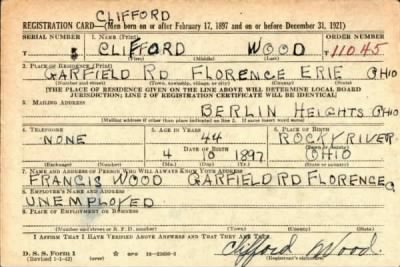 CLIFFORD
REGISTRATION CARD—(Men born on or after February 17, 1897 and on or before December 31, 1921)
SERIAL NUMBER 1. NAME (Print) ORDER NUMBER
T CLIFFORD WOOD T11045
(First) (Middle) (Last)
2. PLACE OF RESIDENCE (Print)
GARFIELD RD FLORENCE ERIE OHIO
(Number and street) (Town, township, village, or city) (County) (State)
[THE PLACE OF RESIDENCE GIVEN ON THE LINE ABOVE WILL DETERMINE LOCAL BOARD
JURISDICTION; LINE 2 OF REGISTRATION CERTIFICATE WILL BE IDENTICAL]
3. MAILING ADDRESS
BERLIN HEIGHTS OHIO
[Mailing address if other than place indicated on line 2. If same insert word same]
4. TELEPHONE 5. AGE IN YEARS 6. PLACE OF BIRTH
NONE 44 ROCKY RIVER
DATE OF BIRTH (Town or county)
4 1897 OHIO
(Exchange) (Number) (Mo.) (Day) (Yr.) (State or country)
7. NAME AND ADDRESS OF PERSON WHO WILL ALWAYS KNOW YOUR ADDRESS
FRANCIS WOOD GARFIELD RD FLORENCE O
8. EMPLOYER'S NAME AND ADDRESS
UNEMPLOYED
9. PLACE OF EMPLOYMENT OR BUSINESS
(Number and street or R. F. D. number) (Town) (County) (State)
I AFFIRM THAT I HAVE VERIFIED ABOVE ANSWERS AND THAT THEY ARE TRUE.
D. S. S. Form 1
(Revised 1-1-42) (over) Clifford Wood
(Registrant's signature)